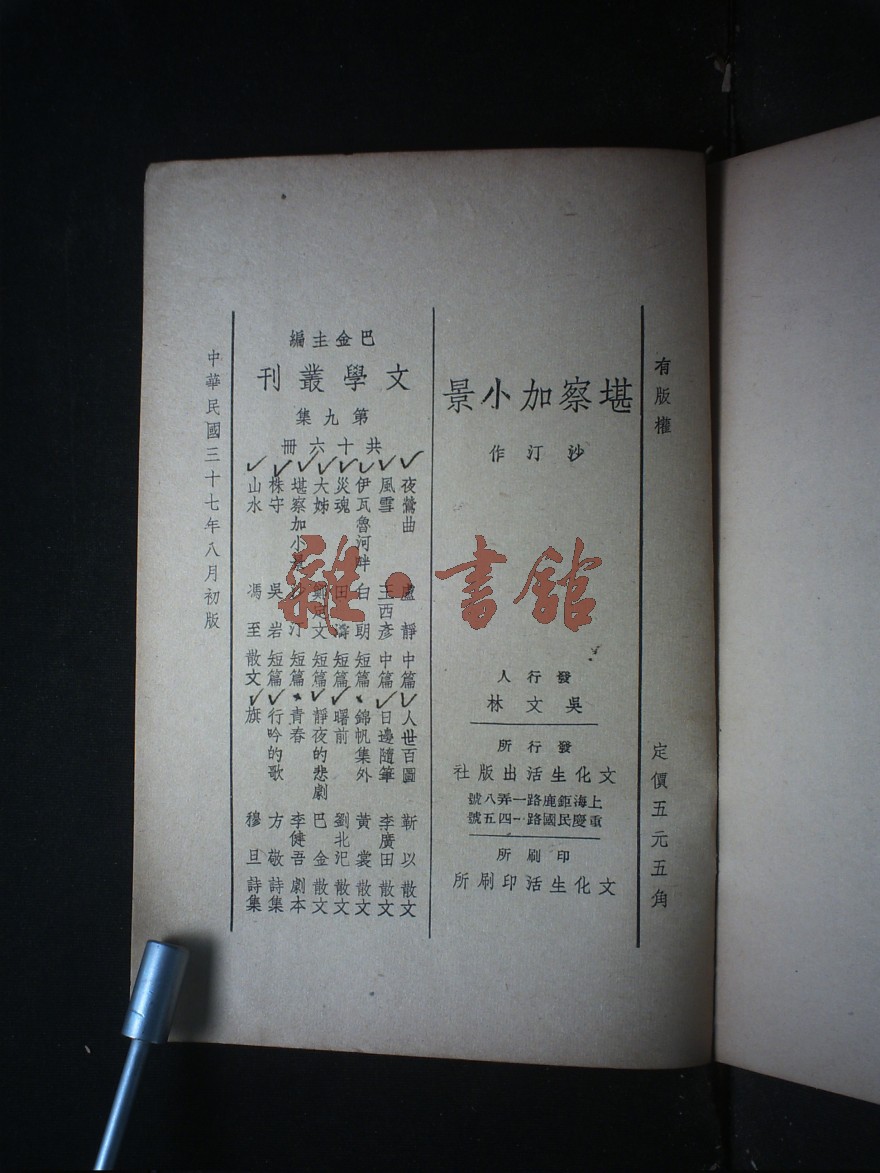 有版權
定價五元五角
堪察加小景
沙汀作
發行人
吳文林
發行所
文化生活出版社
上海鉅鹿路一弄八號
重慶民國路一四五號
印刷所
文化生活印刷所
巴金主編
文學叢刊
第九集
共十六冊
夜鶯曲 盧靜 中篇
風雪 王西彥 中篇
伊瓦魯河畔 白朗 短篇
災魂 田濤 短篇
大姊 鄭定文 短篇
堪察加小景 沙汀 短篇
株守 吳岩 短篇
山水 馮至 散文
人世百圖 靳以 散文
日邊隨筆 李廣田 散文
錦帆集外 黃裳 散文
曙前 劉北汜 散文
靜夜的悲劇 巴金 散文
青春 李健吾 劇本
行吟的歌 方敬 詩集
旗 穆旦 詩集
中華民國三十七年八月初版
雜·書館